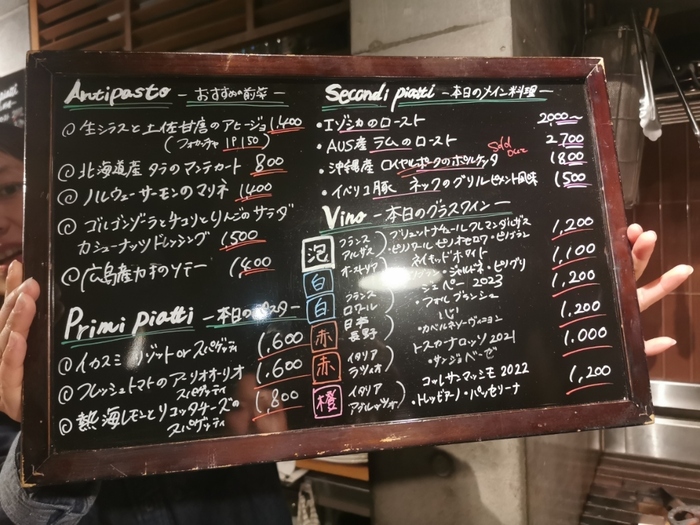 Antipasto - おすすめの前菜 -
◎ 生シラスと土佐甘唐のアヒージョ 1,400
(フォカッチャ 1P150)
◎ 北海道産 タラのマンテカート 800
◎ ノルウェーサーモンのマリネ 1,400
◎ ゴルゴンゾーラとチコリとりんごのサラダ
カシューナッツドレッシング 1,500
◎ 広島産カキのソテー 1,400
Primi piatti - 本日のパスタ -
◎ イカスミ リゾット or スパゲッティ 1,600
◎ フレッシュトマトのアーリオオーリオ
スパゲッティ 1,600
◎ 熱海レモンとリコッタチーズの
スパゲッティ 1,800
Secondi piatti - 本日のメイン料理 -
・エゾシカのロースト 2,000~
・AUS産 ラムのロースト 2,700
・沖縄産 ロイヤルポークのポルケッタ Sold out 1,800
・イベリコ豚 ネックのグリル ピメント風味 1,500
Vino - 本日のグラスワイン -
泡 フランス アルザス ブリュット ナチュール クレマンダルザス
・ピノノワール ピノオーセロワ・ピノブラン 1,200
白 オーストリア ネイキッドホワイト
・シャルドネ・ピノグリ 1,100
白 フランス ロワール 2023
・フォルブランシュ 1,200
赤 日本 長野
・カベルネソーヴィニヨン 1,200
赤 イタリア ラツィオ トスカーナロッソ 2021
・サンジョベーゼ 1,000
橙 イタリア アブルッツォ コレサンマッシモ 2022
・トレッビアーノ・パッセリーナ 1,200